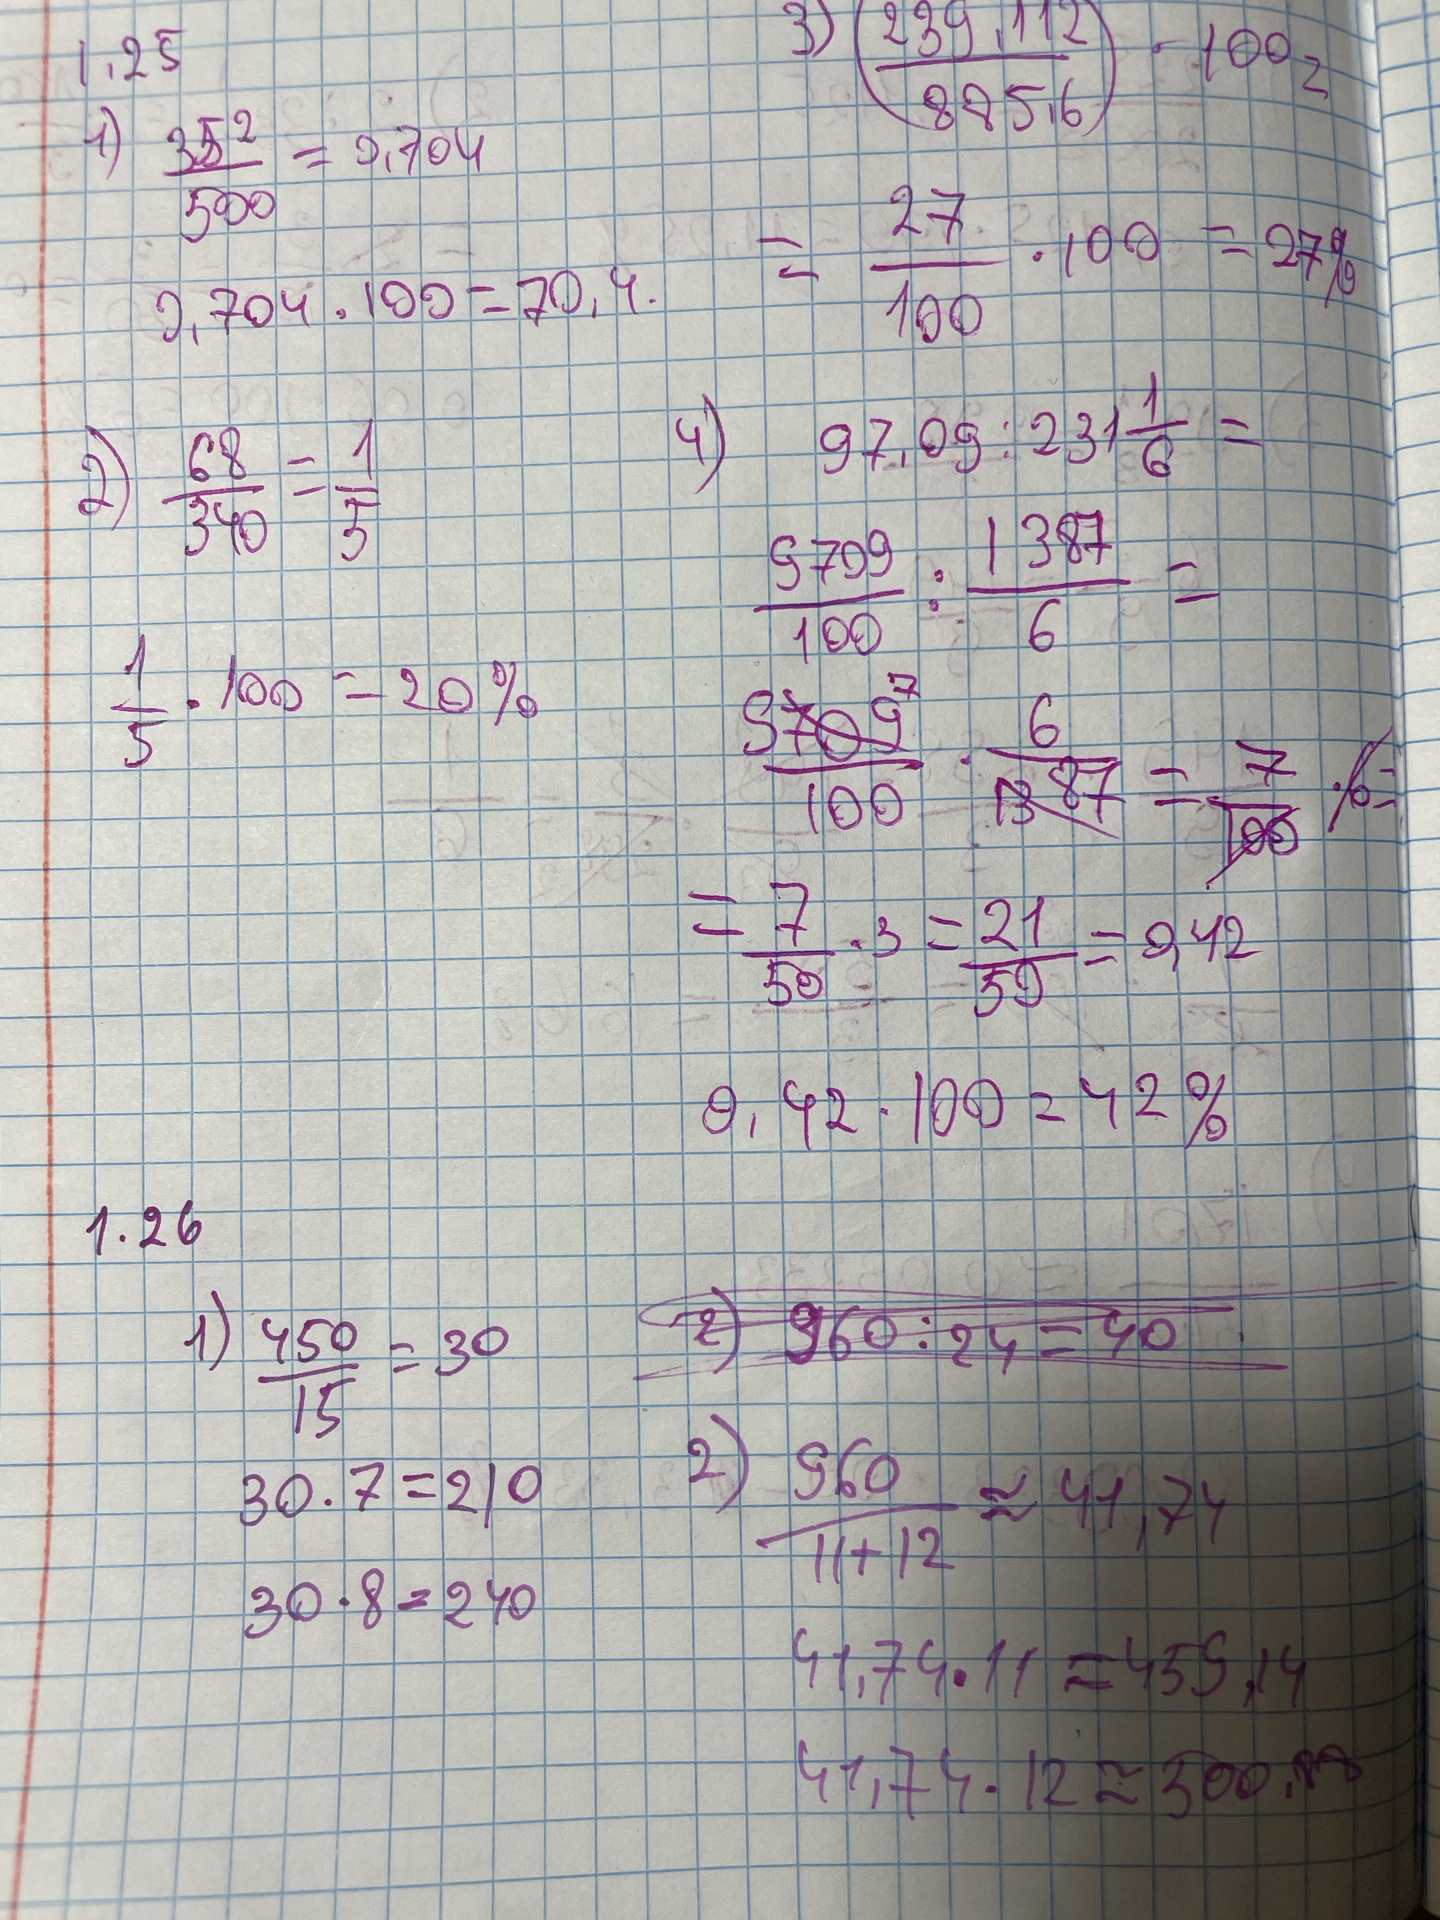 1.25
1) 352/500 = 0,704
0,704 · 100 = 70,4.
2) 68/340 = 1/5
1/5 · 100 = 20%
3) (239,112/885,6) · 100 =
= 27/100 · 100 = 27%
4) 97,09 : 231 1/6 =
9709/100 : 1387/6 =
9709 7/100 · 6/1387 = 7/100 · 6 =
= 7/50 · 3 = 21/50 = 0,42
0,42 · 100 = 42%
1.26
1) 450/15 = 30
30 · 7 = 210
30 · 8 = 240
2) 960 : 24 = 40
2) 960/11+12 ≈ 41,74
41,74 · 11 = 459,14
41,74 · 12 ≈ 500,